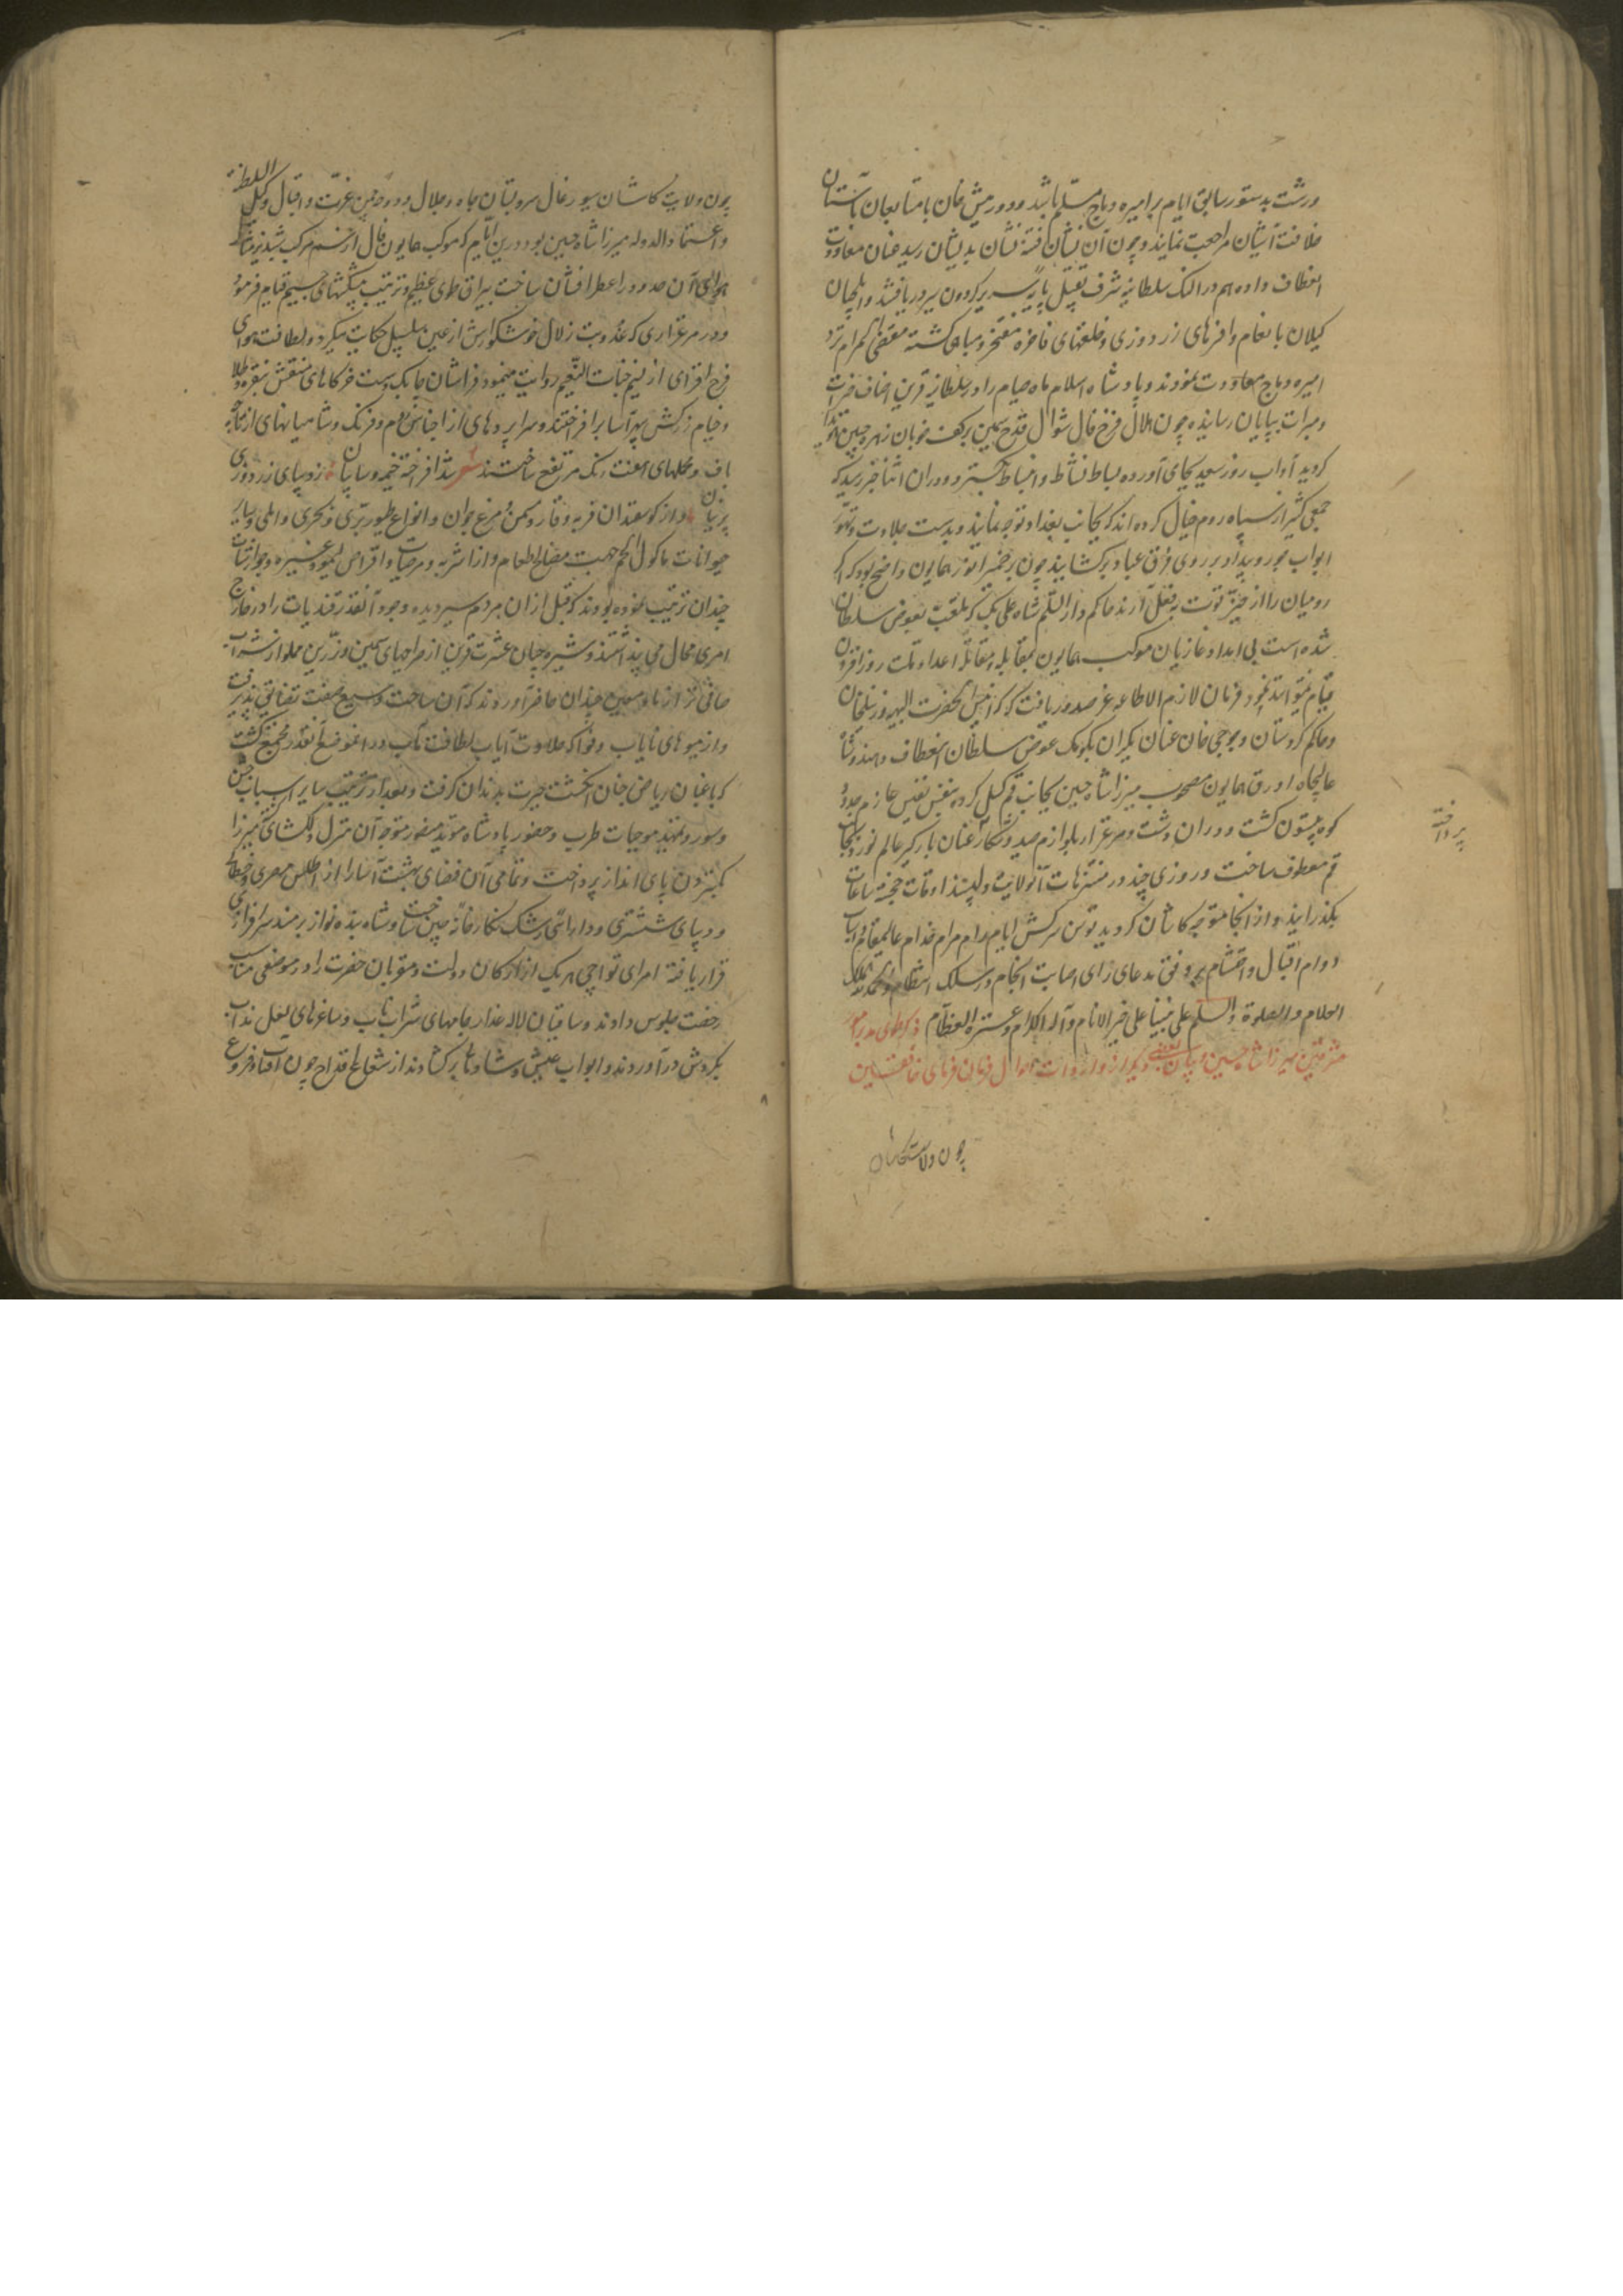 ورشت بدستور سابق ایام بر امیره دباج مسلم باشد و دورمیش خان با متابعان بآستان
خلافت آشیان مراجعت نمایند و چون آن نشان فتنه نشان بدیشان رسید عنان معاودت
انعطاف داده هم در النک سلطانیه شرف تقبیل پایه سریر گردون سریر دریافتند و ایلچیان
کیلان بانعام وافرهای زردوزی و خلعتهای فاخره مفتخر و مباهی کشته مقضی المرام نزد
امیره دباج معاودت نمودند و پادشاه اسلام ماه صیام را در سلطانیه قرین اضاف خیرات
ومبرات بپایان رسانیده چون هلال فرخ فال شوال قدح سیمین برکف خوبان زهره جبین
کردید آداب روز سعید بجای آورده بساط نشاط و انبساط بکسترد و در آن اثنا خبر رسید که
جمعی کثیر از سپاه روم خیال کرده اند که بجانب بغداد توجه نمایند و بدست جلادت و تهور
ابواب جور و بیداد بر روی فرق عباد برکشایند چون بر ضمیر انور همایون واضح بود که اگر
رومیان را از حیز قوت بفعل آرند حاکم دار السلم شاه علی بیک که ملقب بعوض سلطان
شده است بی امداد غازیان موکب همایون بمقابله و مقاتله اعداء دولت روز افزون
قیام نمیتواند نمود فرمان لازم الاطاعه عز صدور یافت که
وحاکم کردستان و جوجی خان عنان یکران بکومک عوض سلطان انعطاف دهند و شاه
عالیجاه اورق همایون مصحوب میرزا شاه حسین بجانب قم کسیل کرده بنفس نفیس عازم حدود
کوه بیستون کشت و در آن دشت و مرغزار بلوازم صید و شکار عنان بارکیر عالم نورد بجانب
قم معطوف ساخت و روزی چند در متنزهات آنولایت دلپسند اوقات خجسته ساعات
بکذرانید و از آنجا متوجه کاشان کردید توسن سرکش ایام رام مرام خدام عالیمقام و اسباب
دوام اقبال و احتشام بر وفق مدعای رای اصابت انجام در سلک انتظام والحمد لله الملک
العلام والصلوة والسلم علی نبینا علی خیر الانام وآله الکرام وعترة العظام ذکر طوی
میرزا شاه حسین و بیان بعضی دیگر از واردات احوال فرمان فرمای خافقین
چون ولایت کاشان
پرداخته
چون ولایت کاشان سیورغال سرو بستان جاه و جلال و دوحه چمن عزت و اقبال وکیل السلطنه
واعتماد الدوله میرزا شاه حسین بود درین ایام که موکب همایون فال از سم مرکب شبدیز مثال
هوای آن حدود را عطرافشان ساخت بیراق طوی عظیم و ترتیب پیشکشهای جسیم قیام فرمود
و در مرغزاری که عذوبت زلال خوشکوارش از عین سلسبیل حکایت میکرد و لطافت هوای
فرح افزای از نسیم جنات النعیم روایت مینمود فراشان چابک دست خرکاهای منقش بنقره و طلا
و خیام زرکش سپهر آسا برافراختند و سراپردهای از اجناس روم و فرنک و شامیانهای از
باف و مخملهای هفت رنک مرتفع ساختند شعر شد افراخته خیمه و سایبان ز دیبای زردوزی
پرنیان و از کوسفندان فربه و قاز و مکس و مرغ جوان و انواع طیور بری و بحری و اهلی و سایر
حیوانات ماکول اللحم جهت مصالح طعام و از اشربه و مربیات و اقراص لیمو و غیره
چندان ترتیب نموده بودند که قبل از آن مردم سیردیده وجود آنقدر قندیات را در خارج
امری محال می پنداشتند و شیره جیان عشرت قرین از صراحیهای سیمین و زرین مملو از شراب
صافی تر از ماء معین چندان حاضر آوردند که آن ساحت وسیع صفت تضایق پذیرفت
و از میوهای نایاب و فواکه حلاوت آیاب لطافت مآب در آن موضع آنقدر مجتمع کشت
که باغبان ریاض جنان انکشت حیرت بدندان کرفت و بعد از ترتیب سایر اسباب جشن
وسور و تمهید موجبات طرب و حضور پادشاه مؤید منصور متوجه آن منزل دلکشای میرزا
بکستردن پای انداز پرداخت و تمامی آن فضای بهشت آسا را از اطلس مصری و خطائی
و دیبای ششتری و دارائی رشک نکارخانه چین ساخت و شاه بنده نواز بر مسند سرافرازی
قرار یافته امرای تواچی هر یک از ارکان دولت و مقربان حضرت را در موضعی مناسب
رخصت جلوس دادند و ساقیان لاله عذار جامهای شراب ناب و ساغرهای لعل مذاب
بکردش درآوردند و ابواب عیش و شادمانی برکشادند از شعاع اقداح چون آفتاب فروغ